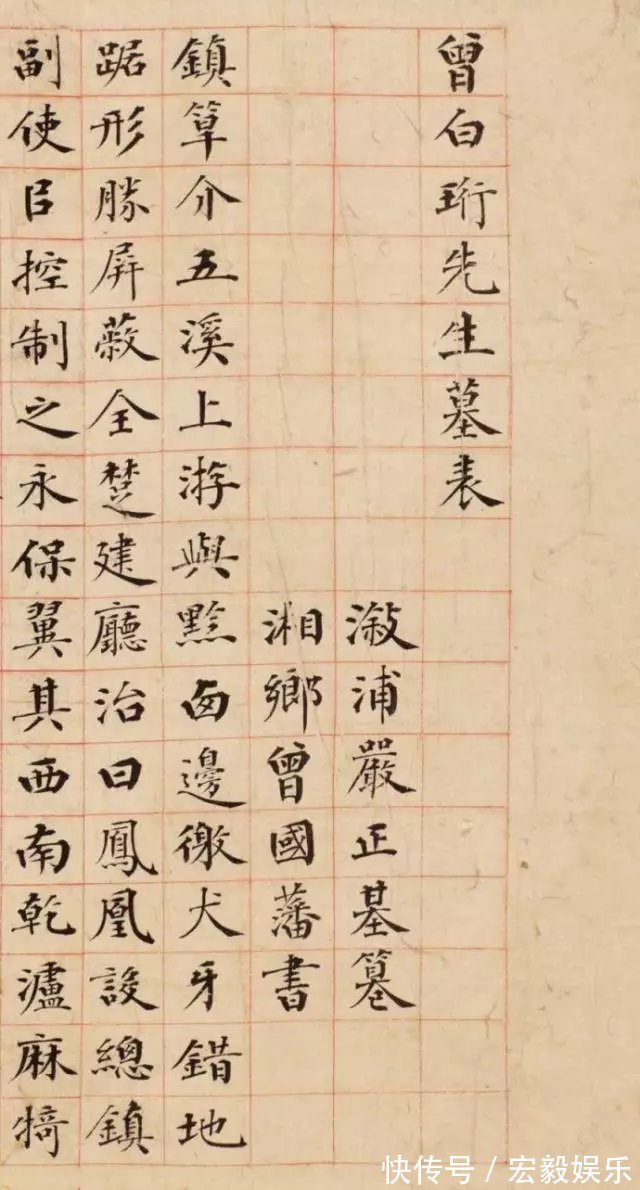 曾白珩先生墓表
漵浦嚴正基
湘鄉曾國藩書
鎮筸介五溪上游與黔卥邊徼犬牙錯地
踞形勝屏蔽全楚建廳治曰鳳凰設總鎮
副使㠯控制之永保翼其西南乾瀘麻犄
快传号/宏毅娱乐